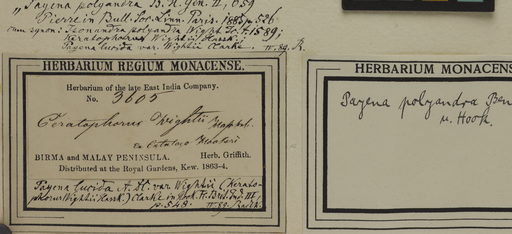 „Payena polyandra B. H. Gen. II, 659
Pierre in Bull. Soc. Linn. Paris. 1885, p. 526.
cum synon: Isonandra polyandra Wight Ic. t. 1589;
Keratophorus Wightii Hassk.
Payena lucida var. Wightii Clarke. IV. 89. R.
HERBARIUM REGIUM MONACENSE.
Herbarium of the late East India Company.
No. 3605
Ceratophorus Wightii Hasskl.
BIRMA and MALAY PENINSULA. Herb. Griffith.
Distributed at the Royal Gardens, Kew. 1863-4.
Payena lucida A. DC. var. Wightii (Kerato-
phorus Wightii Hassk.) Clarke in Hook. Fl. Brit. Ind. III,
p. 548. IV. 89. Radlk.
HERBARIUM MONACENS
Payena polyandra Ben
u. Hook.